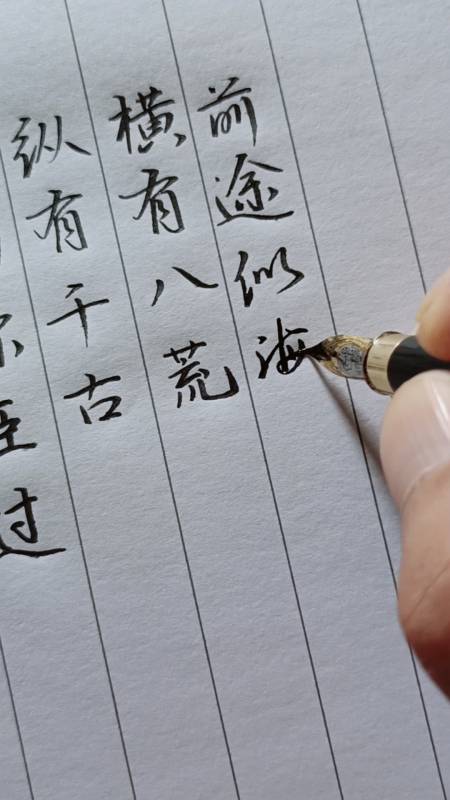 过
纵有千古
横有八荒
前途似海